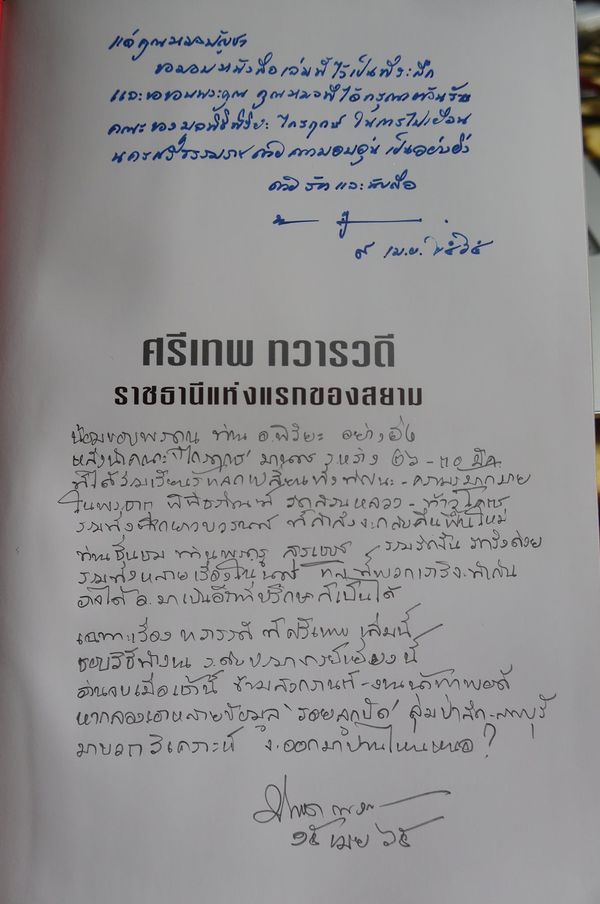 แด่คุณหมอบัญชา
ขอมอบหนังสือเล่มนี้ไว้เป็นที่ระลึก
และขอขอบพระคุณ คุณหมอที่ได้กรุณาต้อนรับ
คณะของมูลนิธิพิริยะ ไกรฤกษ์ ในการไปเยือน
นครศรีธรรมราช ด้วยความอบอุ่น เป็นอย่างยิ่ง
ด้วยรัก และนับถือ
๙ เม.ย. ๒๕๖๕
ศรีเทพ ทวารวดี
ราชธานีแห่งแรกของสยาม
น้อมขอบพระคุณ ท่าน อ.พิริยะ อย่างยิ่ง
หลังนำคณะ ไกรฤกษ์ มานคร ระหว่าง ๒๖-๓๐ มีค
ที่ได้ร่วมเรียนรู้แลกเปลี่ยนทั้งทัศนะ-ความรู้มากมาย
ในพระธาตุ พิพิธภัณฑ์ วัดสวนหลวง - ท้าวโคตร
รวมทั้ง ที่กำลังจะกลับคืนฟื้นใหม่
ท่านชื่นชม ท่านพระครู รวมรักกัน จริงด้วย
รวมทั้งหลายเรื่องใน ที่พวกเราจะทำกัน
อาจได้ อ.มาเป็นอีกที่ปรึกษาก็เป็นได้
เฉพาะเรื่อง ทวารวดี ที่ศรีเทพ เล่มนี้
ชอบวิธีทำงาน ระดับปรมาจารย์เยี่ยงนี้
อ่านจบเมื่อเช้านี้ ข้ามสงกรานต์-งาน
หากลองเอาหลายข้อมูล 'รอยลูกปัด' ลุ่มป่าสัก-ลพบุรี
มาบวก วิเคราะห์ จะออกมาปานไหนหนอ?
๑๕ เมย ๖๕